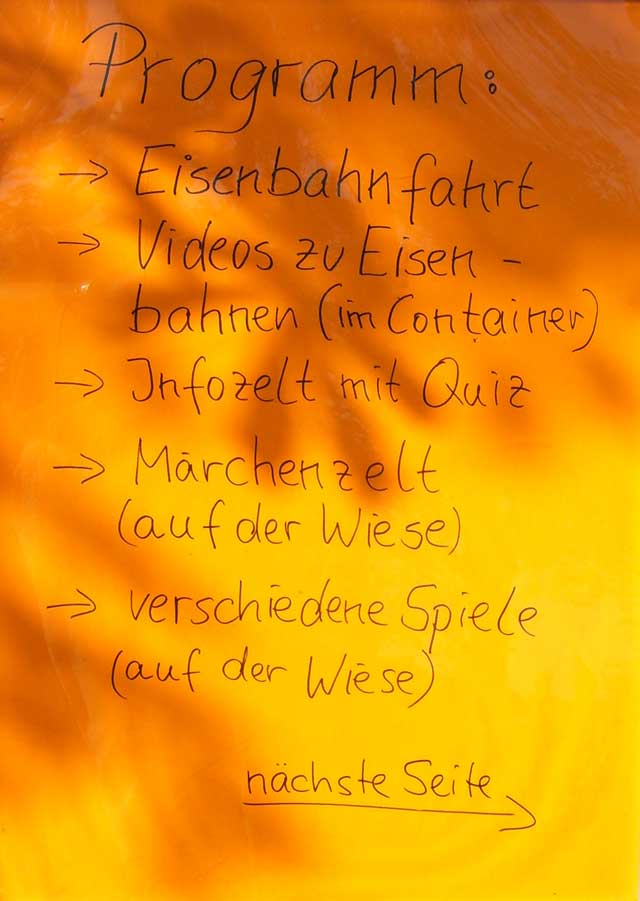 Programm:
→ Eisenbahnfahrt
→ Videos zu Eisen-
bahnen (im Container)
→ Infozelt mit Quiz
→ Märchenzelt
(auf der Wiese)
→ verschiedene Spiele
(auf der Wiese)
nächste Seite